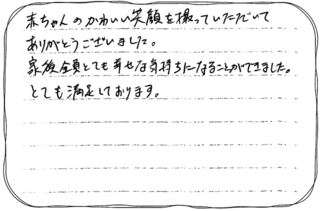 赤ちゃんのかわいい笑顔を撮っていただいて
ありがとうございました。
家族全員とても幸せな気持ちになることができました。
とても満足しております。